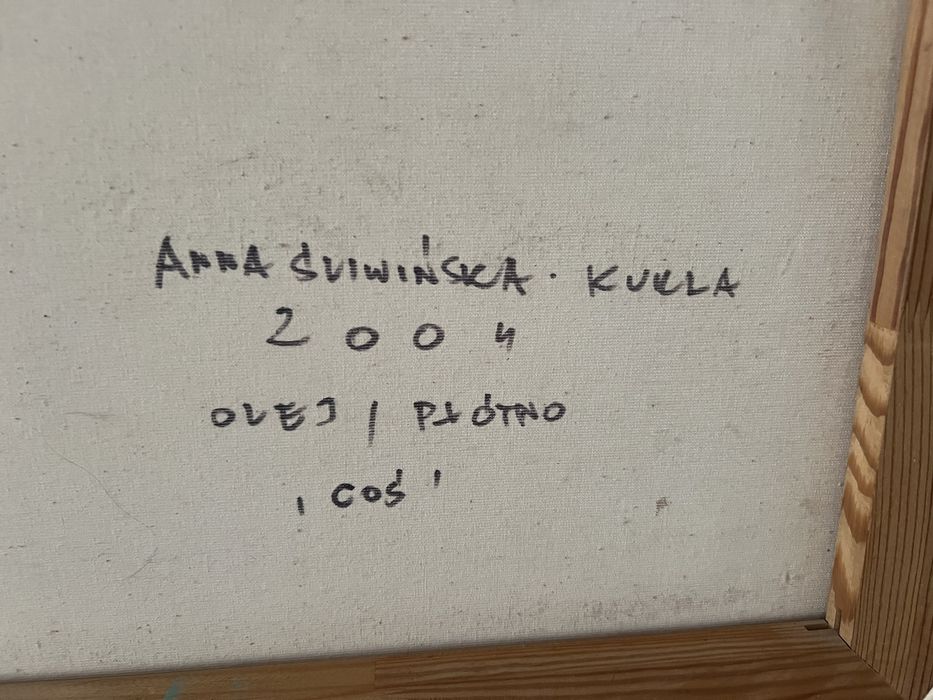 ANNA ŚLIWIŃSKA. KUKLA
2004
OLEJ / PŁÓTNO
, COŚ '